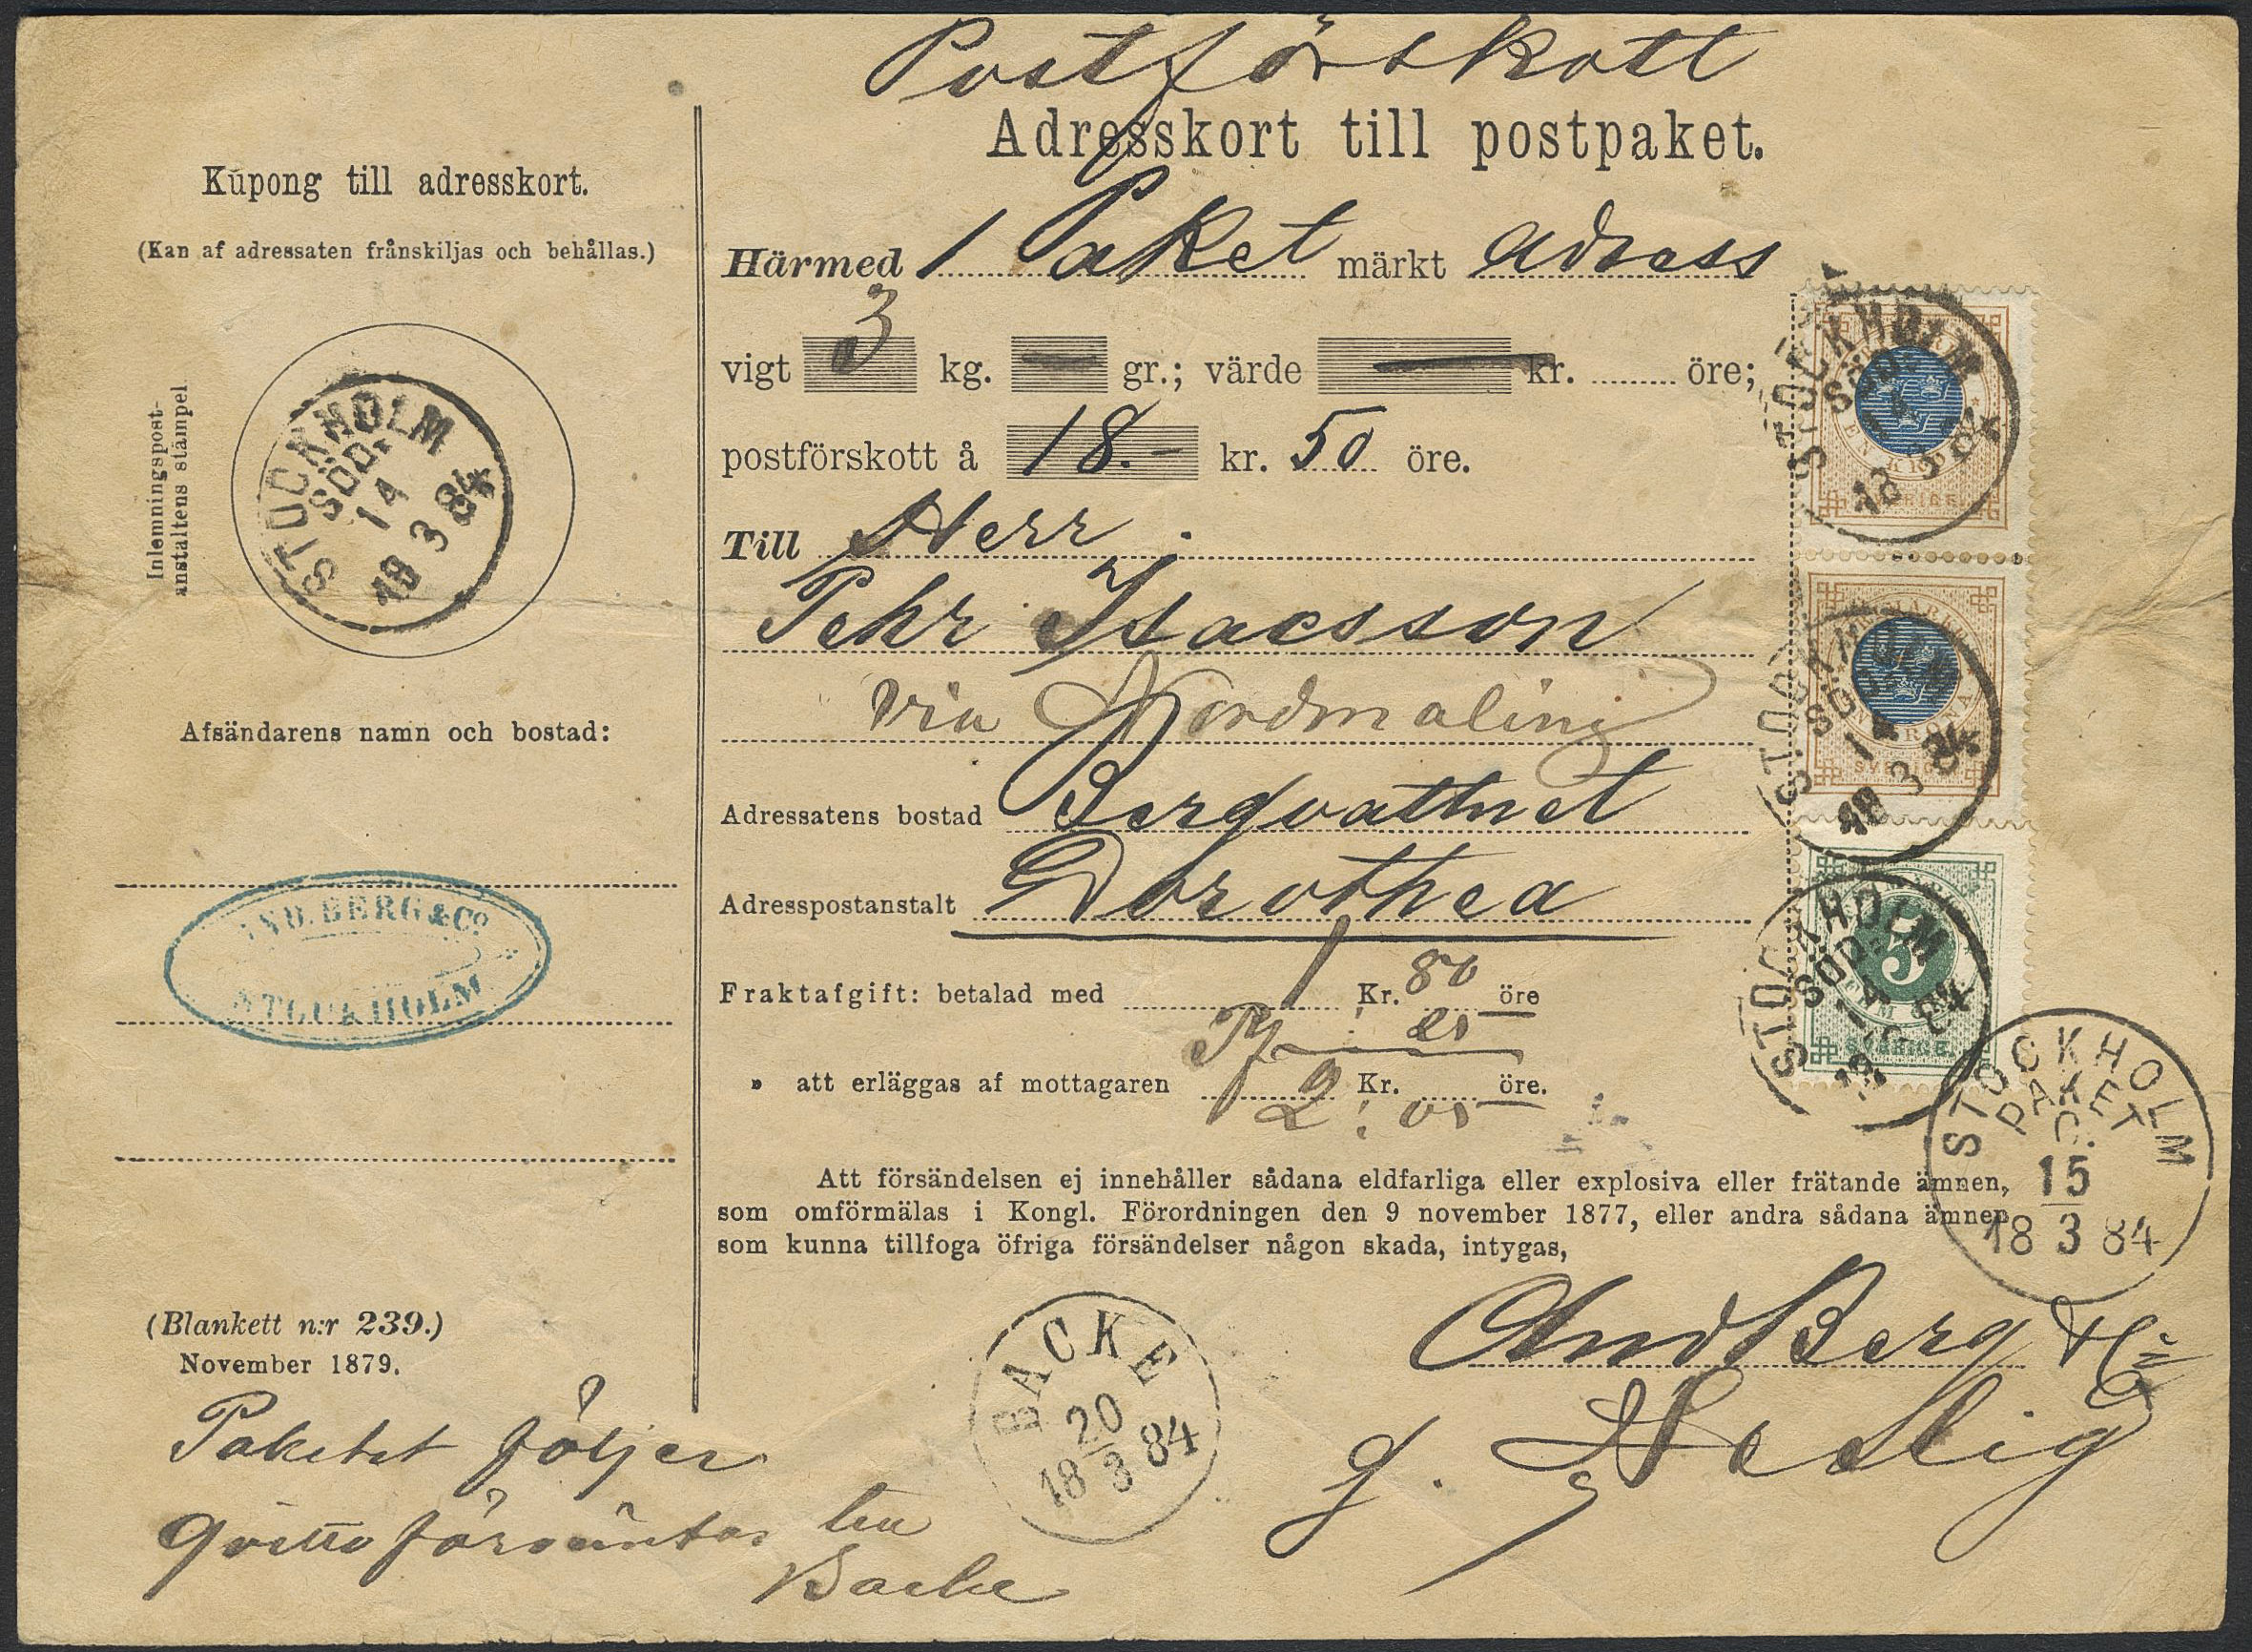 Postförskott
Adresskort till postpaket.
Kupong till adresskort.
(Kan af adressaten frånskiljas och behållas.)
Inlemningspost-
anstaltens stämpel
STOCKHOLM
SÖD.
14
18 3 84
Afsändarens namn och bostad:
AND. BERG & Co
STOCKHOLM
(Blankett n:r 239.)
November 1879.
Paketet följer
Qvitto förväntas
Backe
Härmed 1 Paket märkt adress
vigt 3 kg. — gr.; värde — kr. öre;
postförskott å 18.- kr. 50 öre.
Till Herr
Pehr Isacsson
via Nordmaling
Adressatens bostad Bergvattnet
Adresspostanstalt Dorothea
Fraktafgift: betalad med 1 Kr. 80 öre
Pf : 25
» att erläggas af mottagaren Kr. öre.
2 : 05
Att försändelsen ej innehåller sådana eldfarliga eller explosiva eller frätande ämnen,
som omförmälas i Kongl. Förordningen den 9 november 1877, eller andra sådana ämnen
som kunna tillfoga öfriga försändelser någon skada, intygas,
And Berg & Co
g.
BACKE
20
18 3 84
STOCKHOLM
SÖD.
14
18 3 84
EN KRONA
SVERIGE
STOCKHOLM
SÖD.
14
18 3 84
EN KRONA
SVERIGE
STOCKHOLM
SÖD.
14
5
FEM
SVERIGE
STOCKHOLM
PAKET
15
18 3 84